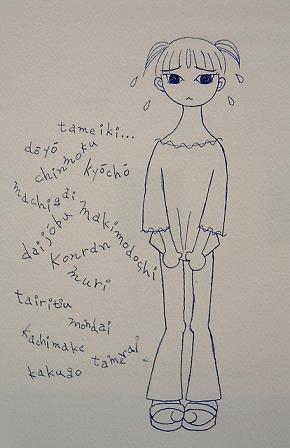 tameiki...
dōyō
chinmoku
kyōchō
machigai
daijōbu
makimodoshi
konran
muri
tairitsu
mondai
kachimake
tamerai
kakugo